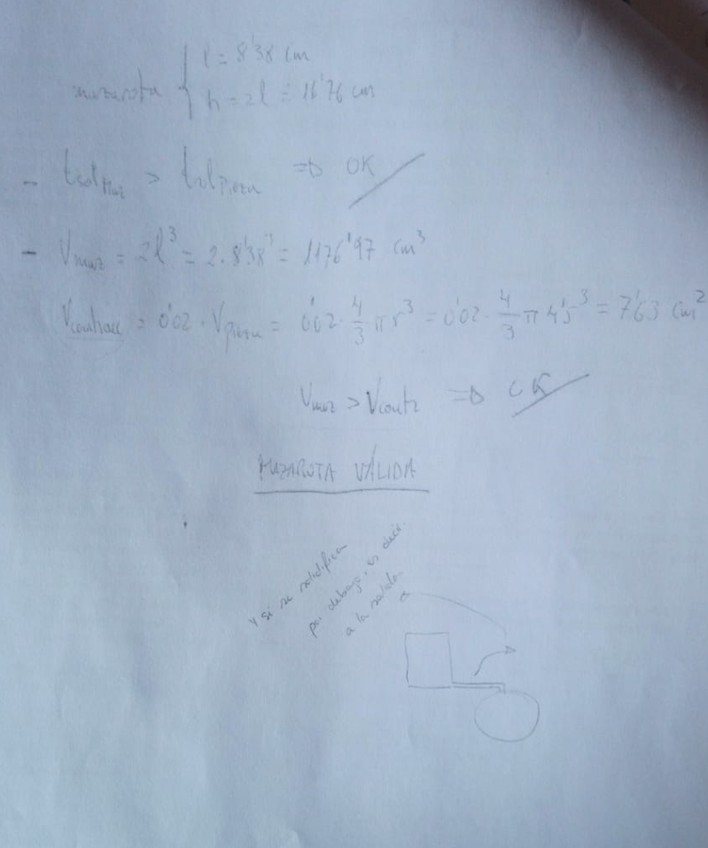 mazarota { l = 8'38 cm
h = 2l = 16'76 cm
- tsol maz > tsol pieza => OK
- Vmaz = 2l³ = 2·8'38³ = 1176'97 cm³
Vcontracc = 0'02 · Vpieza = 0'02 · 4/3 π r³ = 0'02 · 4/3 π 4'5³ = 7'63 cm²
Vmaz > Vcontr => OK
MAZAROTA VÁLIDA
y si se solidifica
por debajo, es decir
a la salida